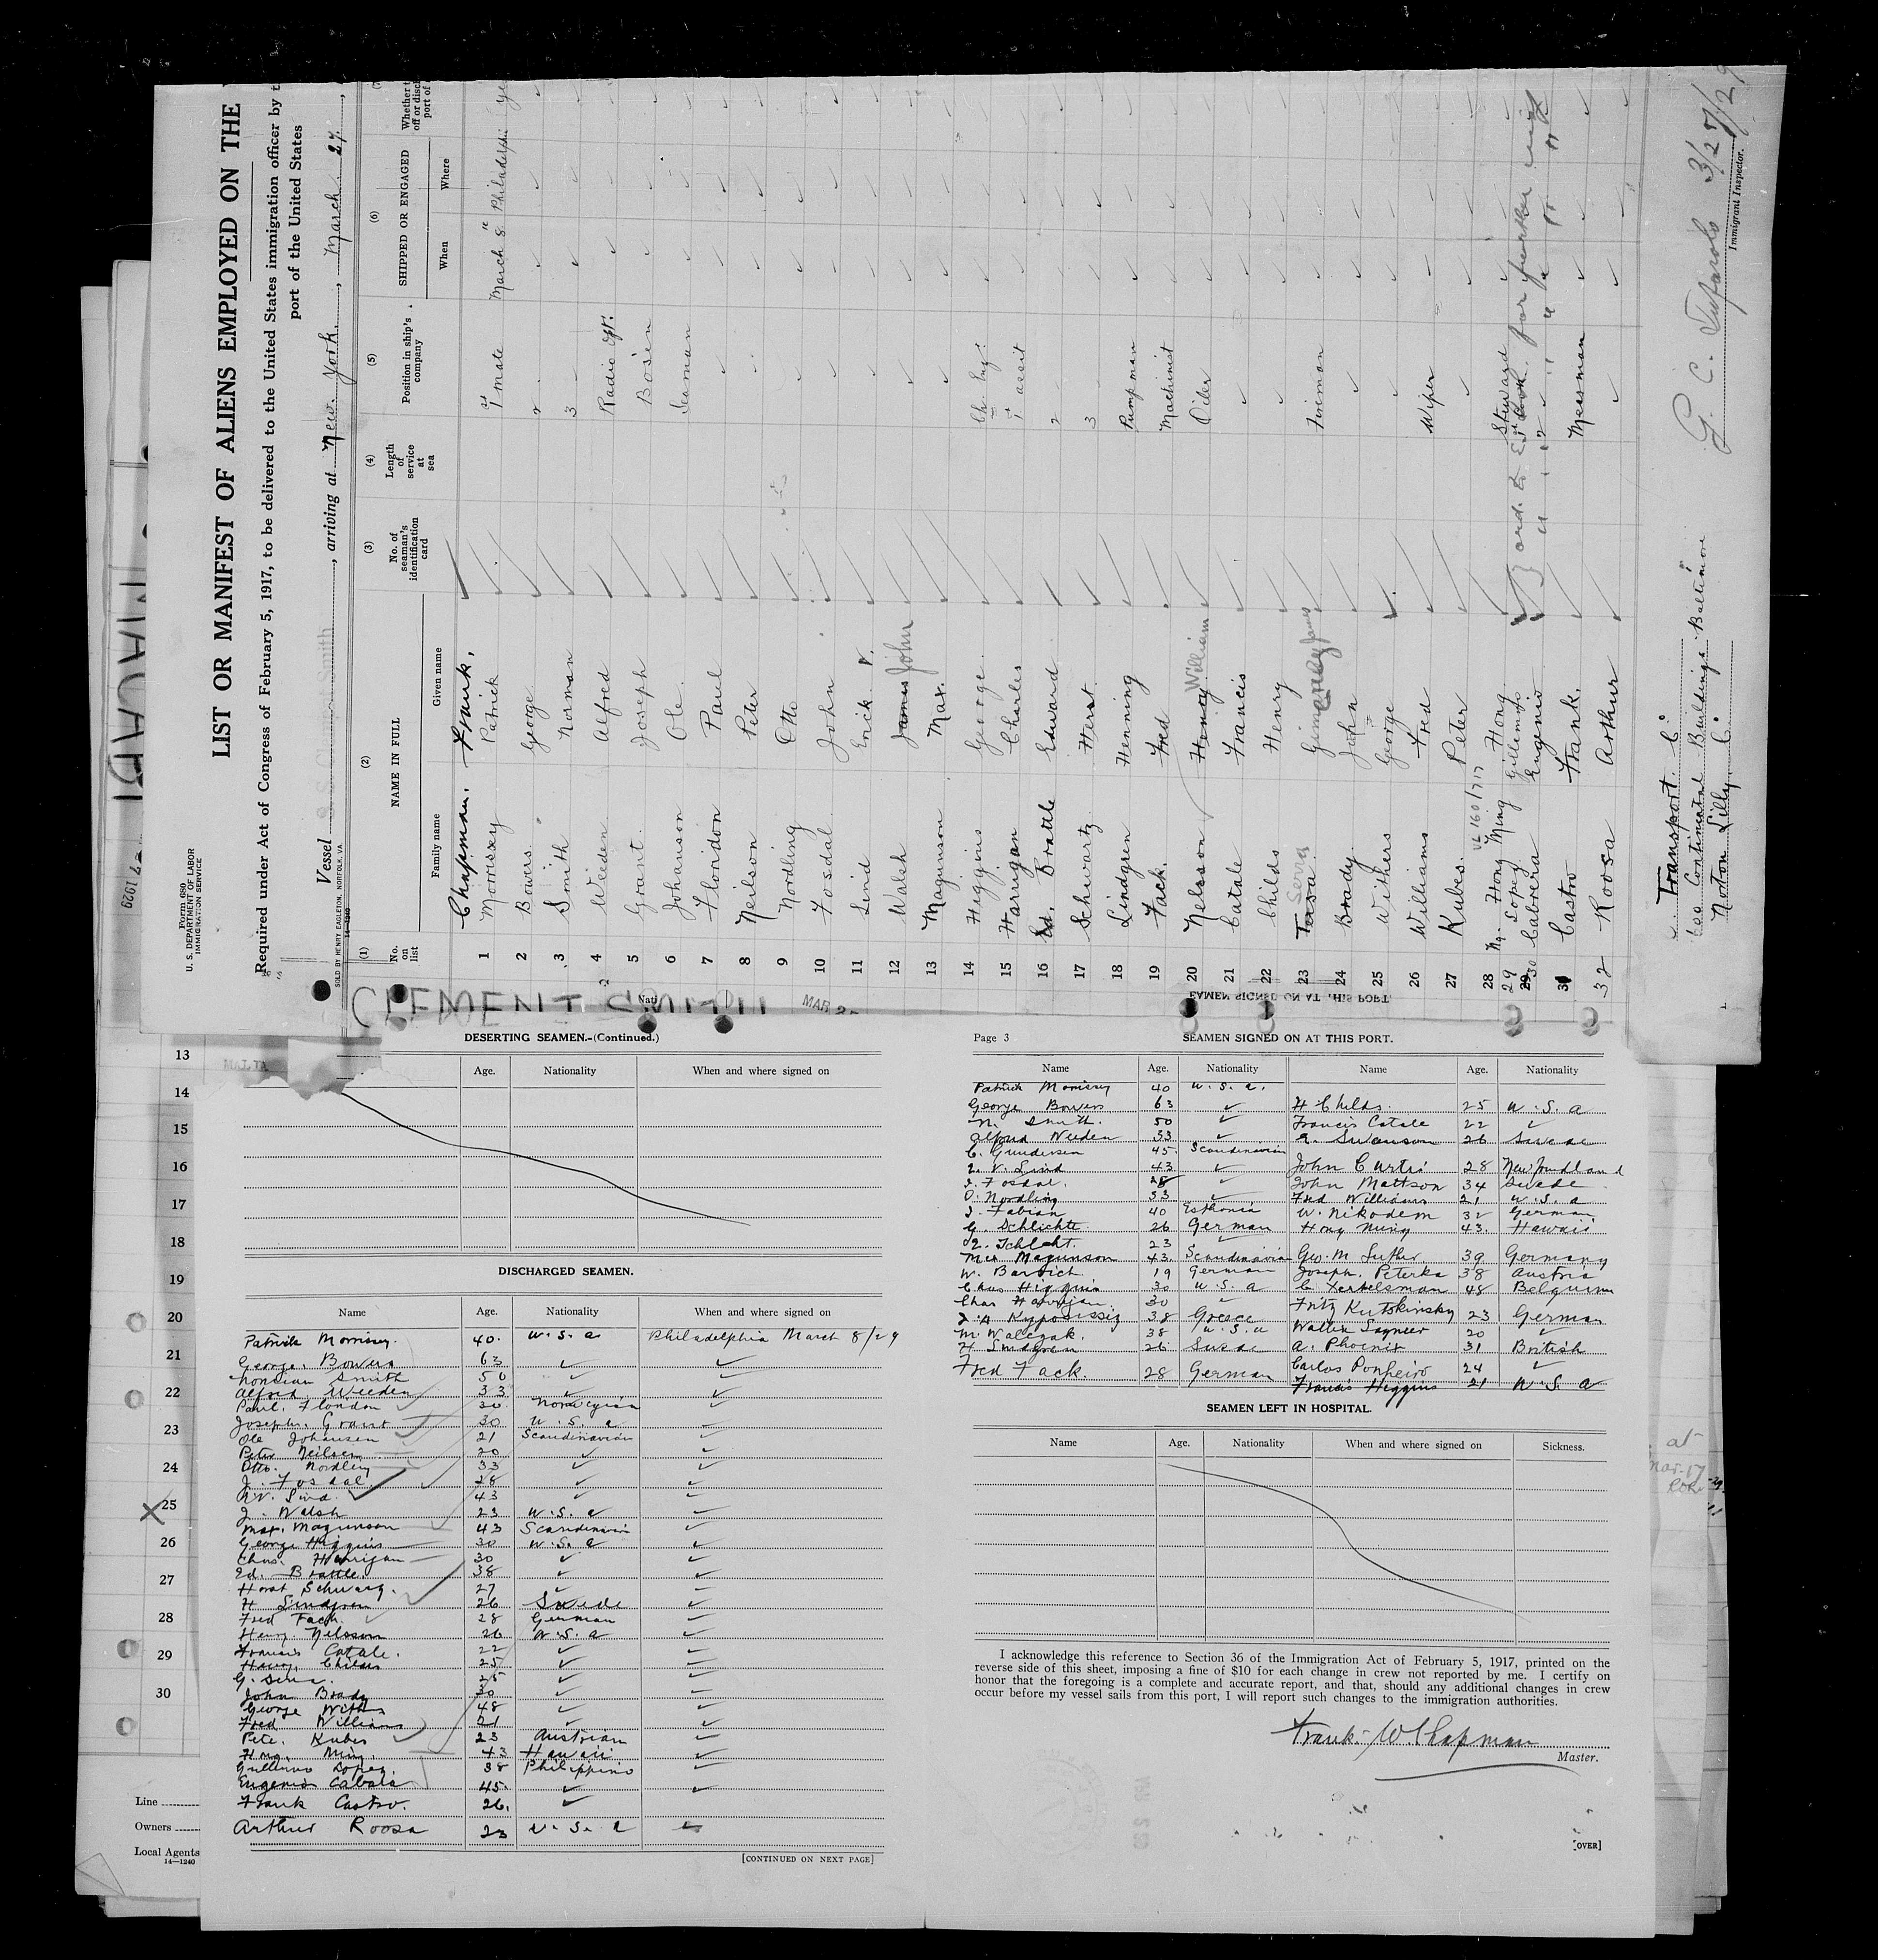 Form 680
U. S. DEPARTMENT OF LABOR
IMMIGRATION SERVICE
LIST OR MANIFEST OF ALIENS EMPLOYED ON THE
Required under Act of Congress of February 5, 1917, to be delivered to the United States immigration officer by
port of the United States
Vessel S.S. Clement Smith, arriving at New York, March 27,
SOLD BY HENRY EAGLETON, NORFOLK, VA.
14-1240
(1) (2) (3) (4) (5) (6)
No. on list NAME IN FULL No. of seaman's identification card Length of service at sea Position in ship's company SHIPPED OR ENGAGED
Family name Given name When Where
Chapman, Frank,
1 Morrissy Patrick 1st Mate March 8" Philadelphi
2 Bowers George 2
3 Smith Norman 3
4 Weeden Alfred Radio Opr.
5 Grant Joseph Bos'en
6 Johanson Ole Seaman
7 Floridon Paul
8 Neilson Peter
9 Nordling Otto
10 Fosdal John
11 Lind Erick V.
12 Walsh James John
13 Magunson Max.
14 Higgins George Ch. Eng.
15 Harrigan Charles 1st assit
16 Ed. Brattle Edward 2
17 Schwartz Herst 3
18 Lindgren Henning Pump man
19 Fack. Fred Machinist
20 Nelsson Henry William Oiler
21 Catale Francis
22 Childs Henry
23 Serra James Fireman
24 Brady John
25 Withers George
26 Williams Fred Wiper
27 Kubes Peter
28 Ng. Hong Ming Hong Steward
29 Lopez Gillermo
30 Cabrera Eugenio
31 Castro Frank. Messman
32 Roosa Arthur
Transport Co
600 Continental Buildings Baltimore
Norton Lilly Co
3/27/29
Immigrant Inspector.
CLEMENT SMITH
SEAMEN SIGNED ON AT THIS PORT
1929
DESERTING SEAMEN.-(Continued.)
Age. Nationality When and where signed on
MALTA
13
14
15
16
17
18
19
20
21
22
23
24
25
26
27
28
29
30
Line
Owners
Local Agents
14-1240
DISCHARGED SEAMEN.
Name Age. Nationality When and where signed on
Patrick Morrissy. 40. U.S.A Philadelphia March 8/29
George. Bowers 63
Norman Smith 50
Alfred Weeden 33
Paul. Floridon 30. Norwegian
Joseph. Grant 30 U.S.A
Ole Johansen 21 Scandinavian
Peter Neilsen 20
Otto. Nordling 33
J. Fosdal 28
Lind 43
J. Walsh 23 U.S.A
Max. Magunson 43 Scandinavin
George Higgins 30 U.S.A
Chas. Harrigan 30
Ed. Brattle. 38
Horst Schwarz. 27
H Lindgren 26 Swede
Fred Fack. 28 German
Henry. Nelsson 26 U.S.A
Francis Catale. 22
Henry. Childs 25
G. Serra. 25
John Brady 30
George Withs 48
Fred Williams 21
Pete. Kubes 23 Austrian
Hong. Ming. 43 Hawaii
Gullermo Lopez. 38 Philippino
Eugenio Cabala 45.
Frank Castro. 26.
Arthur Roosa 23 U.S.A
[CONTINUED ON NEXT PAGE]
Page 3 SEAMEN SIGNED ON AT THIS PORT.
Name Age. Nationality Name Age. Nationality
Patrick Morrissy 40 U.S.A.
George Bowers 63 H Childs. 25 U.S.A
N. Smith. 50 Francis Catale 22
Alfred Weeden 33 Swanson 26 Swede
C. Gundersen 45. Scandinavian
E. V. Lind 43 John Curtis 28 Newfoundland
J. Fosdal. 28 John Mattson 34 Swede
O. Nordling 33 Fred Williams 21 U.S.A
J. Fabian 40 Esthonia W. Nikodem 32 German
G. Schlichte 26 German Hong Ming 43. Hawaii
Schlcht. 23
Max Magunson 43. Scandinavian Geo. M Luther 39 Germany
W. Barvich 19 German Joseph. Peterka 38 Austria
Chas Higgins 30 U.S.A C. Yerkelsman 48 Belguium
Chas Harrigan. 30 Fritz Kutskinsky 23 German
38 Greece
M. Wallczak. 38 U.S.A Walter 20
H Lindgren 26 Swede A. Phoenix 31 British
Fred Fack. 28 German Carlos Ponheiro 24
Francis Higgins 21 U.S.A
SEAMEN LEFT IN HOSPITAL.
Name Age. Nationality When and where signed on Sickness.
I acknowledge this reference to Section 36 of the Immigration Act of February 5, 1917, printed on the
reverse side of this sheet, imposing a fine of $10 for each change in crew not reported by me. I certify on
honor that the foregoing is a complete and accurate report, and that, should any additional changes in crew
occur before my vessel sails from this port, I will report such changes to the immigration authorities.
Frank W. Chapman
Master.
[OVER]